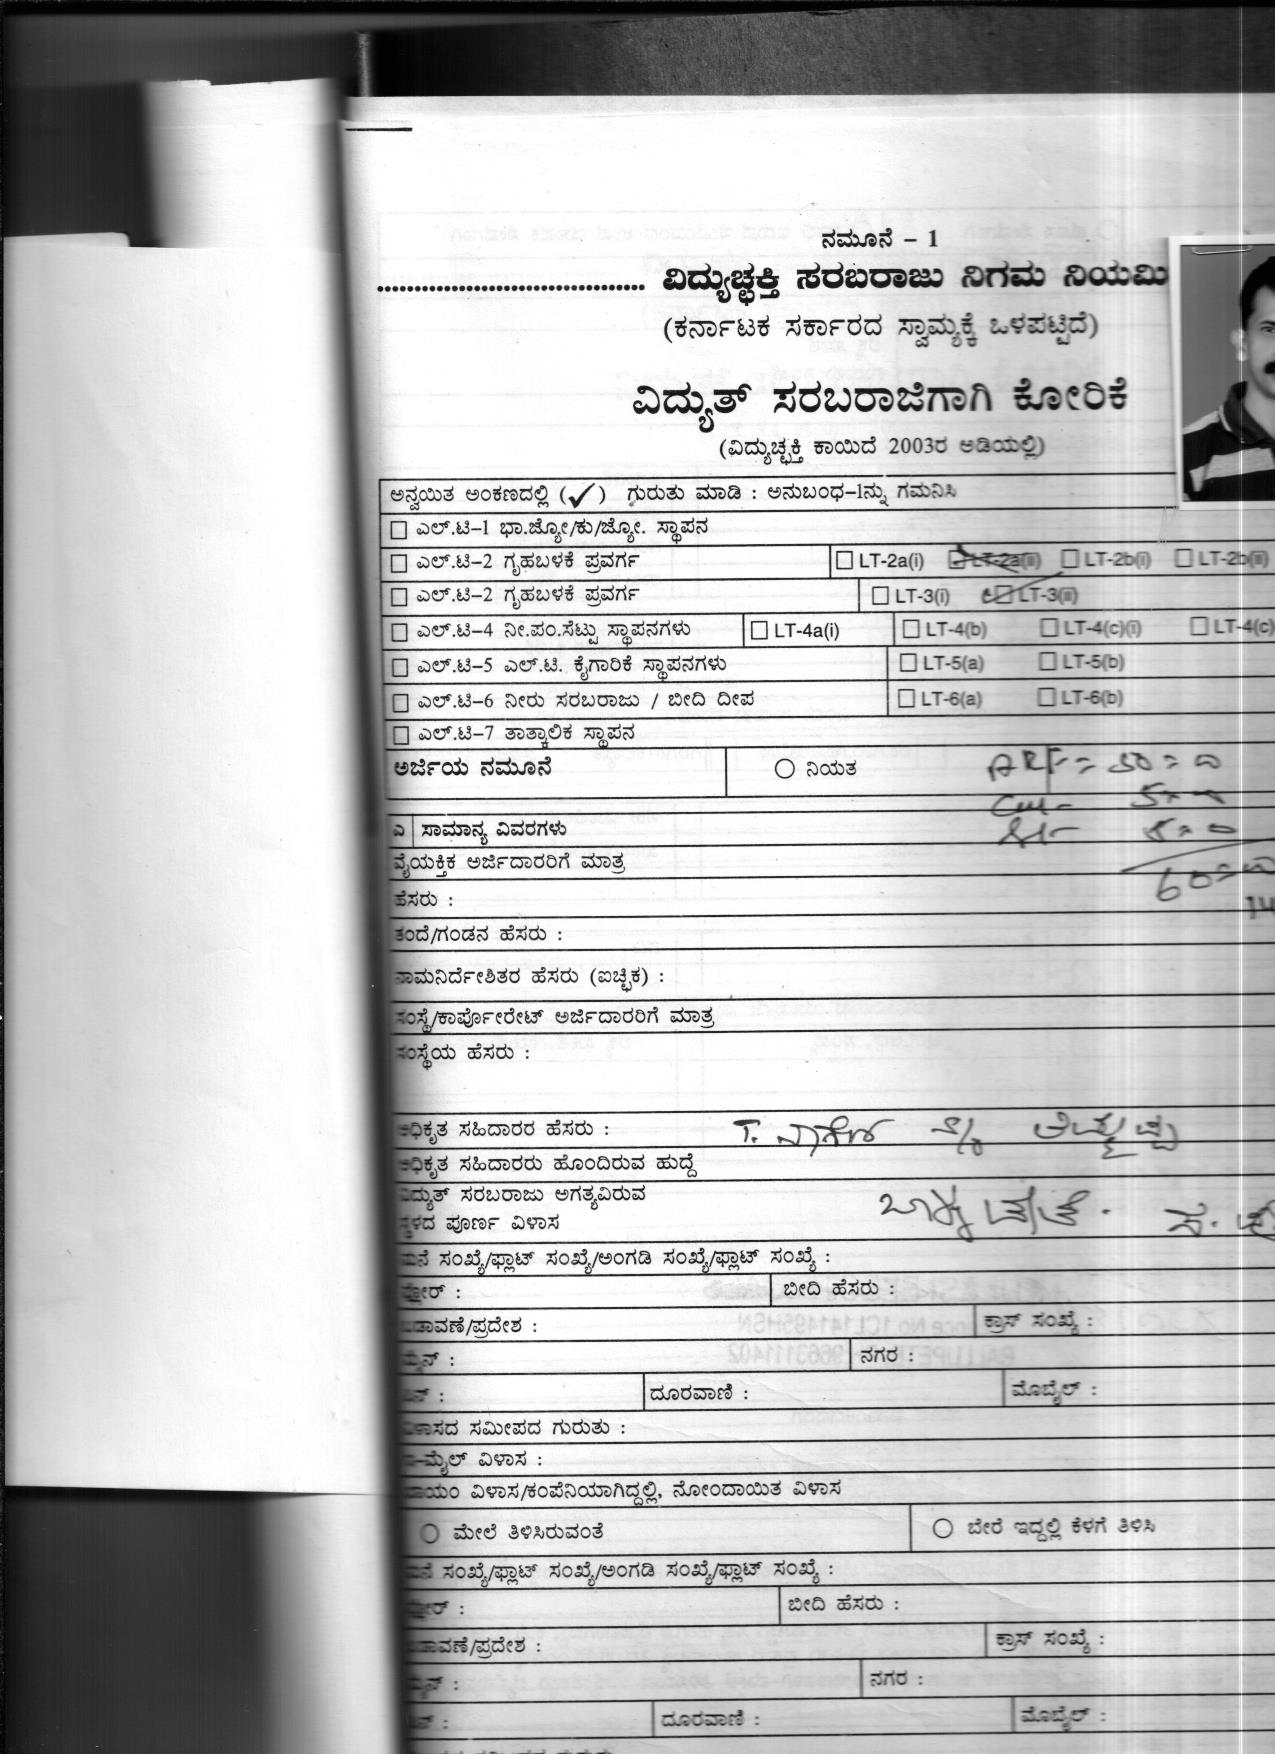 ನಮೂನೆ – 1
.................................... ವಿದ್ಯುಚ್ಛಕ್ತಿ ಸರಬರಾಜು ನಿಗಮ ನಿಯಮಿ
(ಕರ್ನಾಟಕ ಸರ್ಕಾರದ ಸ್ವಾಮ್ಯಕ್ಕೆ ಒಳಪಟ್ಟಿದೆ)
ವಿದ್ಯುತ್ ಸರಬರಾಜಿಗಾಗಿ ಕೋರಿಕೆ
(ವಿದ್ಯುಚ್ಛಕ್ತಿ ಕಾಯಿದೆ 2003ರ ಅಡಿಯಲ್ಲಿ)
ಅನ್ವಯಿತ ಅಂಕಣದಲ್ಲಿ (✓) ಗುರುತು ಮಾಡಿ : ಅನುಬಂಧ–1ನ್ನು ಗಮನಿಸಿ
ಎಲ್.ಟಿ–1 ಭಾ.ಜ್ಯೋ/ಕು/ಜ್ಯೋ. ಸ್ಥಾಪನ
ಎಲ್.ಟಿ–2 ಗೃಹಬಳಕೆ ಪ್ರವರ್ಗ LT-2a(i) LT-2a(ii) LT-2b(i) LT-2b(ii)
ಎಲ್.ಟಿ–2 ಗೃಹಬಳಕೆ ಪ್ರವರ್ಗ LT-3(i) LT-3(ii)
ಎಲ್.ಟಿ–4 ನೀ.ಪಂ.ಸೆಟ್ಟು ಸ್ಥಾಪನಗಳು LT-4a(i) LT-4(b) LT-4(c)(i) LT-4(c)
ಎಲ್.ಟಿ–5 ಎಲ್.ಟಿ. ಕೈಗಾರಿಕೆ ಸ್ಥಾಪನಗಳು LT-5(a) LT-5(b)
ಎಲ್.ಟಿ–6 ನೀರು ಸರಬರಾಜು / ಬೀದಿ ದೀಪ LT-6(a) LT-6(b)
ಎಲ್.ಟಿ–7 ತಾತ್ಕಾಲಿಕ ಸ್ಥಾಪನ
ಅರ್ಜಿಯ ನಮೂನೆ ನಿಯತ ARF = 50 = 0
ಎ ಸಾಮಾನ್ಯ ವಿವರಗಳು
ವೈಯಕ್ತಿಕ ಅರ್ಜಿದಾರರಿಗೆ ಮಾತ್ರ
ಹೆಸರು :
ತಂದೆ/ಗಂಡನ ಹೆಸರು :
ನಾಮನಿರ್ದೇಶಿತರ ಹೆಸರು (ಐಚ್ಛಿಕ) :
ಸಂಸ್ಥೆ/ಕಾರ್ಪೋರೇಟ್ ಅರ್ಜಿದಾರರಿಗೆ ಮಾತ್ರ
ಸಂಸ್ಥೆಯ ಹೆಸರು :
ಅಧಿಕೃತ ಸಹಿದಾರರ ಹೆಸರು :
ಅಧಿಕೃತ ಸಹಿದಾರರು ಹೊಂದಿರುವ ಹುದ್ದೆ
ವಿದ್ಯುತ್ ಸರಬರಾಜು ಅಗತ್ಯವಿರುವ
ಸ್ಥಳದ ಪೂರ್ಣ ವಿಳಾಸ
ಮನೆ ಸಂಖ್ಯೆ/ಫ್ಲಾಟ್ ಸಂಖ್ಯೆ/ಅಂಗಡಿ ಸಂಖ್ಯೆ/ಫ್ಲಾಟ್ ಸಂಖ್ಯೆ :
ಫ್ಲೋರ್ : ಬೀದಿ ಹೆಸರು :
ಬಡಾವಣೆ/ಪ್ರದೇಶ : ಕ್ರಾಸ್ ಸಂಖ್ಯೆ :
ಮೈನ್ : ನಗರ :
ಪಿನ್ : ದೂರವಾಣಿ : ಮೊಬೈಲ್ :
ವಿಳಾಸದ ಸಮೀಪದ ಗುರುತು :
ಇ–ಮೈಲ್ ವಿಳಾಸ :
ಖಾಯಂ ವಿಳಾಸ/ಕಂಪೆನಿಯಾಗಿದ್ದಲ್ಲಿ, ನೋಂದಾಯಿತ ವಿಳಾಸ
ಮೇಲೆ ತಿಳಿಸಿರುವಂತೆ ಬೇರೆ ಇದ್ದಲ್ಲಿ ಕೆಳಗೆ ತಿಳಿಸಿ
ಮನೆ ಸಂಖ್ಯೆ/ಫ್ಲಾಟ್ ಸಂಖ್ಯೆ/ಅಂಗಡಿ ಸಂಖ್ಯೆ/ಫ್ಲಾಟ್ ಸಂಖ್ಯೆ :
ಫ್ಲೋರ್ : ಬೀದಿ ಹೆಸರು :
ಬಡಾವಣೆ/ಪ್ರದೇಶ : ಕ್ರಾಸ್ ಸಂಖ್ಯೆ :
ಮೈನ್ : ನಗರ :
ಪಿನ್ : ದೂರವಾಣಿ : ಮೊಬೈಲ್ :